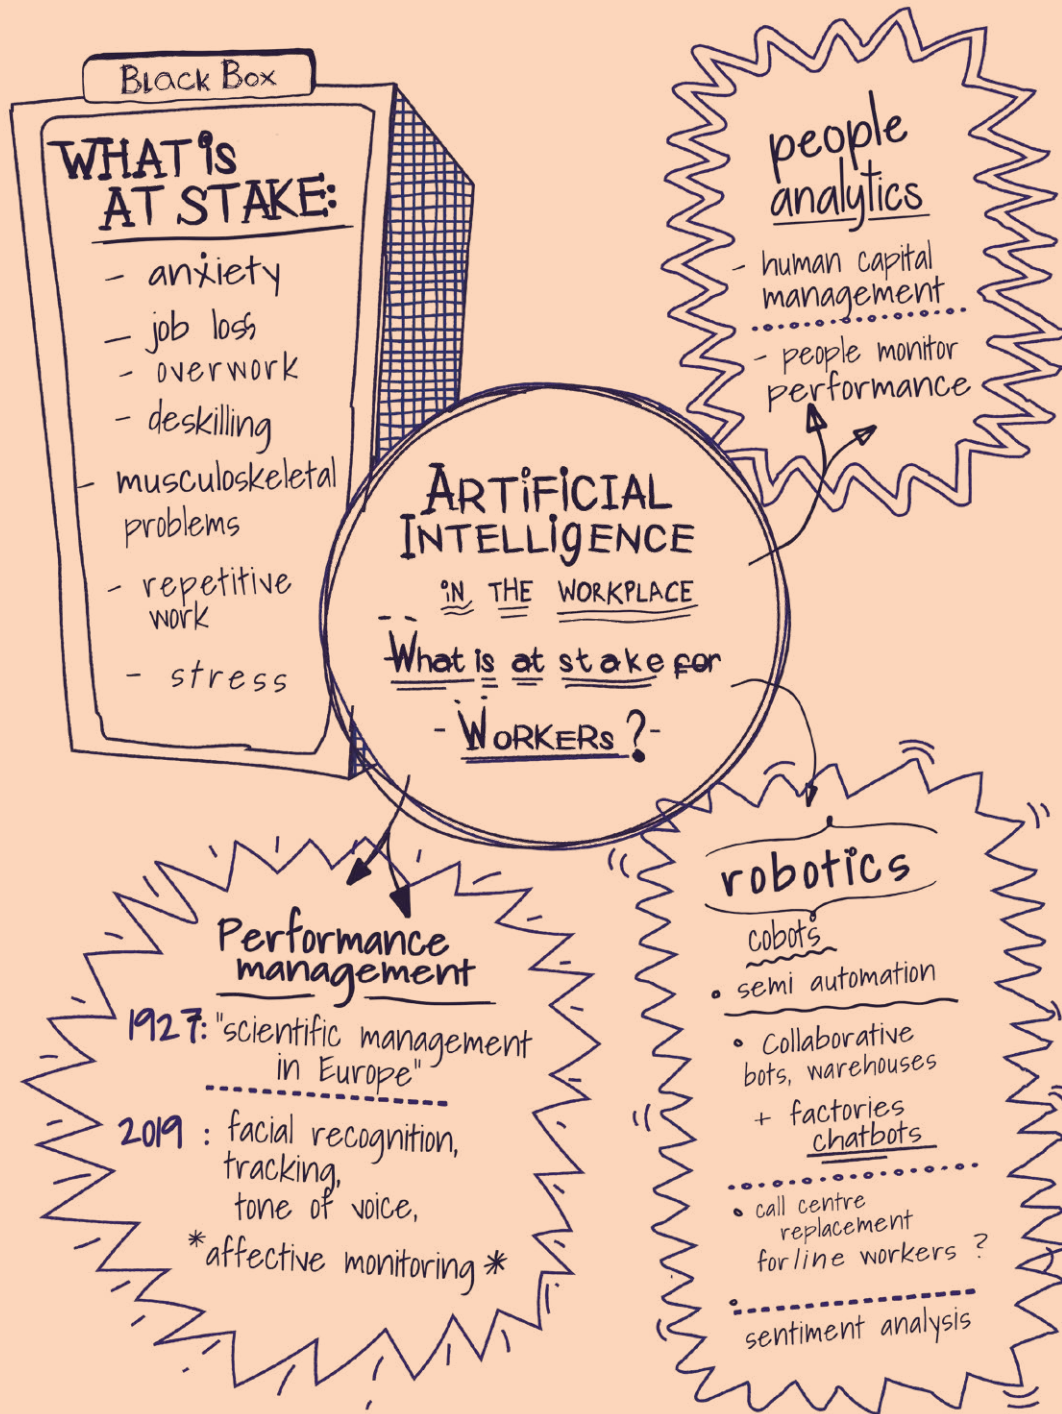 Black Box
WHAT iS
AT STAKE:
- anxiety
- job loss
- overwork
- deskilling
- musculoskeletal
problems
- repetitive
work
- stress
people
analytics
- human capital
management
- people monitor
performance
ARTiFiCIAL
INTELLIgENCE
iN THE WORKPLACE
What is at stake for
- WORKERS ? -
Performance
management
1927: "scientific management
in Europe"
2019 : facial recognition,
tracking,
tone of voice,
*affective monitoring *
robotics
cobots
• semi automation
• Collaborative
bots, warehouses
+ factories
chatbots
• call centre
replacement
for line workers ?
•
sentiment analysis